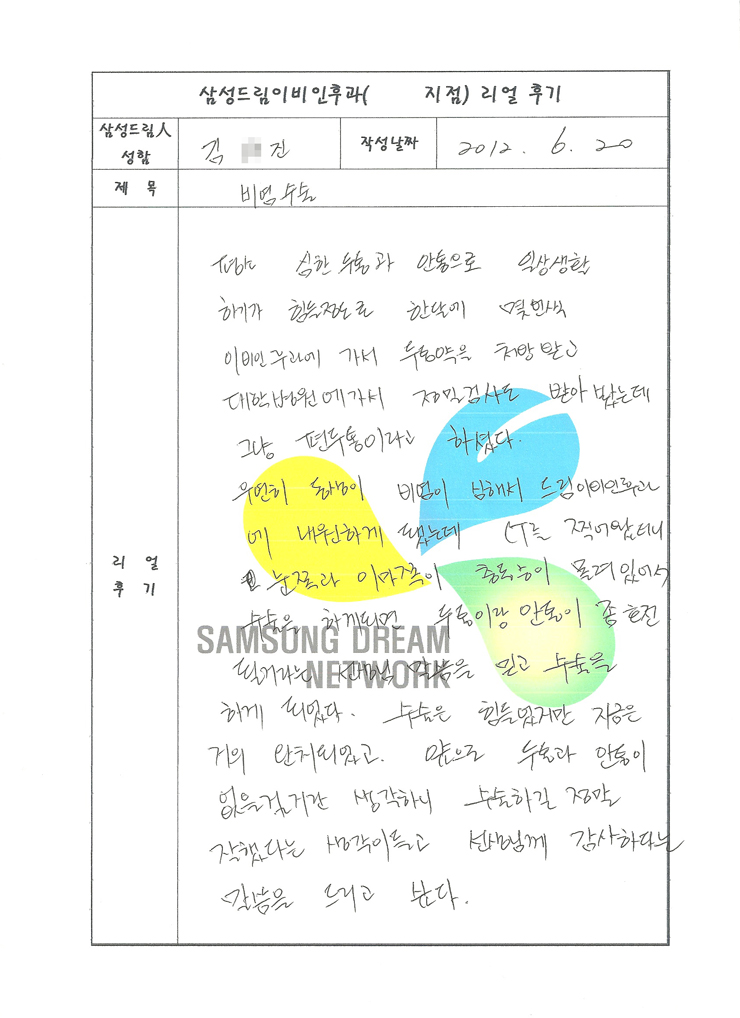 삼성드림이비인후과( 지점) 리얼 후기
삼성드림人
성함
김 진
작성날짜
2012. 6. 20
제 목
비염수술
평소 심한 두통과 안통으로 일상생활
하기가 힘들정도로 한달에 몇번씩
이비인후과에 가서 두통약을 처방 받고
대학병원에가서 정밀검사도 받아 봤는데
그냥 편두통이라고 하셨다.
우연히 동생이 비염이 심해서 드림이비인후과
에 내원하게 됐는데 CT를 찍어봤더니
눈쪽과 이마쪽이 축농증이 몰려있어서
수술을 하게되면 두통이랑 안통이 좀 호전
될거라는 선생님 말씀을 믿고 수술을
하게 되었다. 수술은 힘들었지만 지금은
거의 완치되었고. 앞으로 두통과 안통이
없을걸거란 생각하니 수술하길 정말
잘했다는 생각이들고 선생님께 감사하다는
말씀을 드리고 싶다.
리 얼
후 기
SAMSUNG DREAM
NETWORK